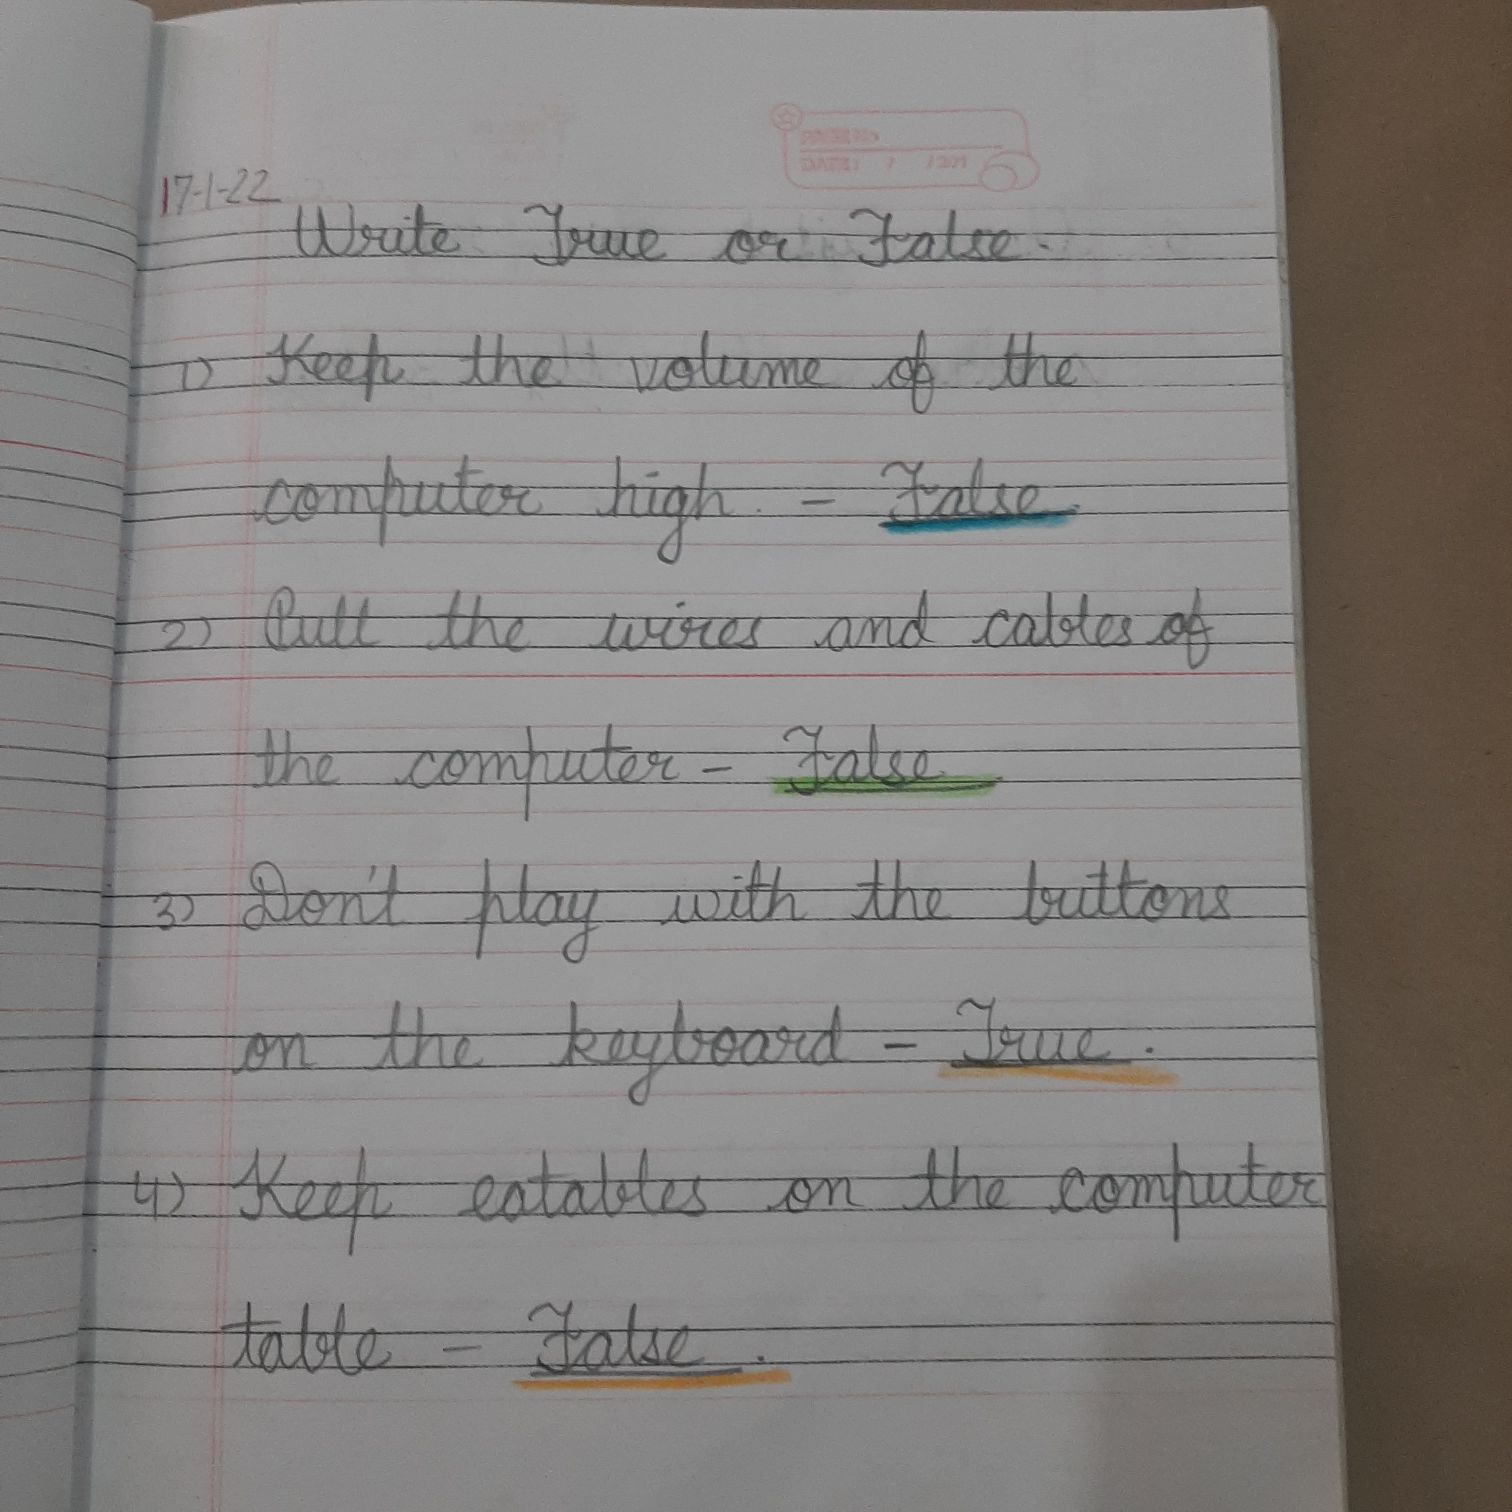 PAGE No.
DATE: / /201
17-1-22
Write True or False.
1) Keep the volume of the
computer high. - False.
2) Pull the wires and cables of
the computer - False
3) Don't play with the buttons
on the keyboard - True.
4) Keep eatables on the computer
table - False.